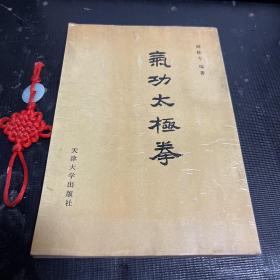 編著
氣功太極拳
天津大学出版社